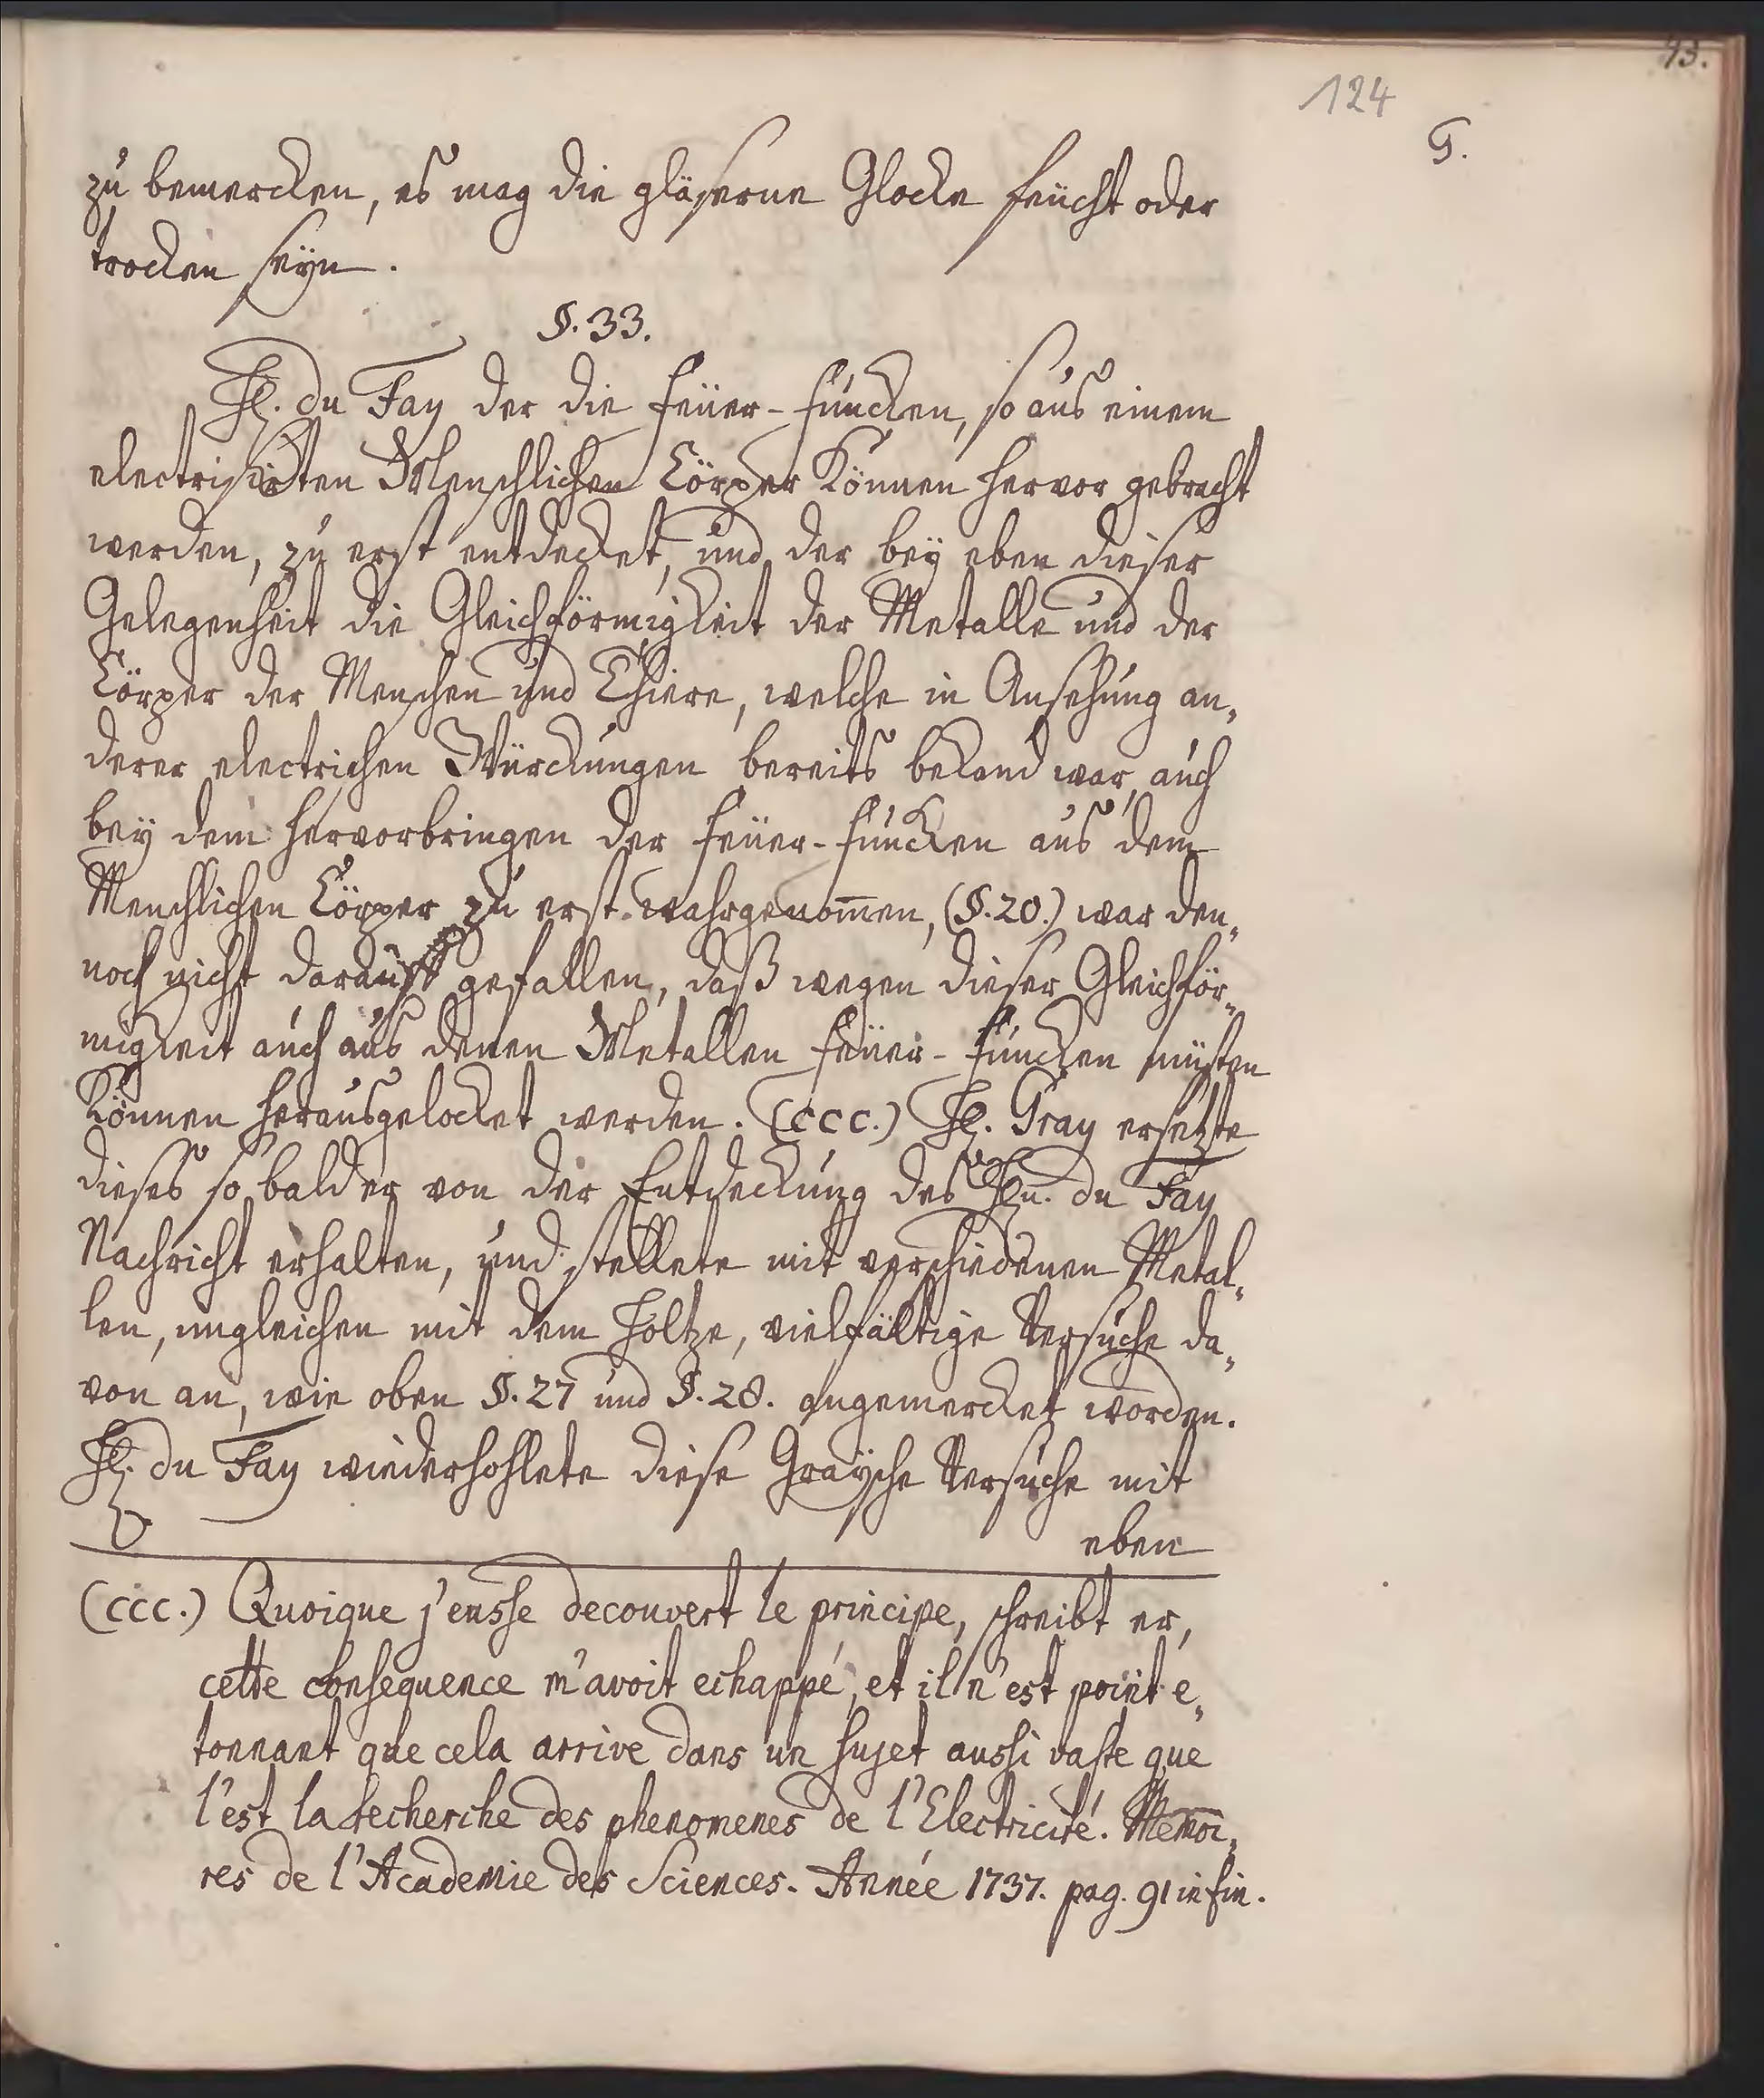 43.
124
G.
zu bemercken, es mag die gläserne Glocke feucht oder
trocken seÿn.
§. 33.
H. du Fay der die Feüer-Funcken, so aus einem
electrisirten Menschlichen Cörper können hervor gebracht
werden, zu erst entdecket, und der beÿ eben dieser
Gelegenheit die Gleichförmigkeit der Metalle und der
Cörper der Menschen und Thiere, welche in Ansehung an„
derer electrichen Würckungen bereits bekand war, auch
beÿ dem hervorbringen der Feüer-Funcken aus dem
Menchlichen Cörper zu erst wahrgenom̅en, (§. 20.) war den„
noch nicht darauff gefallen, daß wegen dieser Gleichför„
migkeit auch aus denen Metallen Feüer-Funcken müsten
können herausgelocket werden. (ccc.) H. Gray ersetzte
dieses so bald er von der Entdeckung des Hn. du Fay
Nachricht erhalten, und stellete mit verschiedenen Metal„
len, imgleichen mit dem Holtze, vielfältige Versuche da„
von an, wie oben §. 27 und §. 28. angemercket worden.
H. du Fay wiederhohlete diese Graÿsche Versuche mit
eben
(ccc.) Quoique j'eusse decouvert le principe, schreibt er,
cette consequence m'avoit echappé, et il n'est point é„
tonnant que cela arrive dans un sujet aussi vaste que
l'est la recherche des phenomenes de l'Electricité. Memoi„
res de l'Academie des Sciences. Année 1737. pag. 91 in fin.